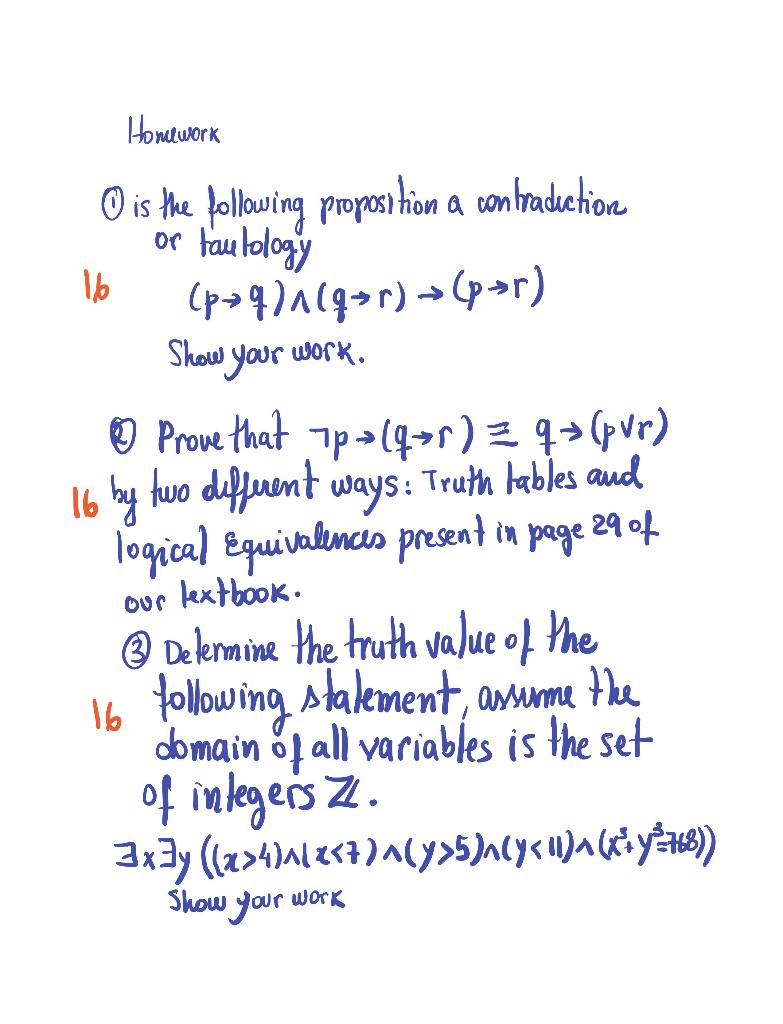 Homework
① is the following proposition a contradiction
or tautology
16
(p→q)∧(q→r)→(p→r)
Show your work.
② Prove that ¬p→(q→r) ≡ q→(p∨r)
16 by two different ways: Truth tables and
logical Equivalences present in page 29 of
our textbook.
③ Determine the truth value of the
following statement, assume the
16
domain of all variables is the set
of integers ℤ.
∃x∃y((x>4)∧(x<7)∧(y>5)∧(y<11)∧(x³+y³=768))
Show your work